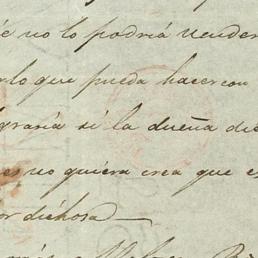 é no lo podría vender
rlo que pueda hacer con
graria si la dueña di
es no quiera crea que e
or dichosa